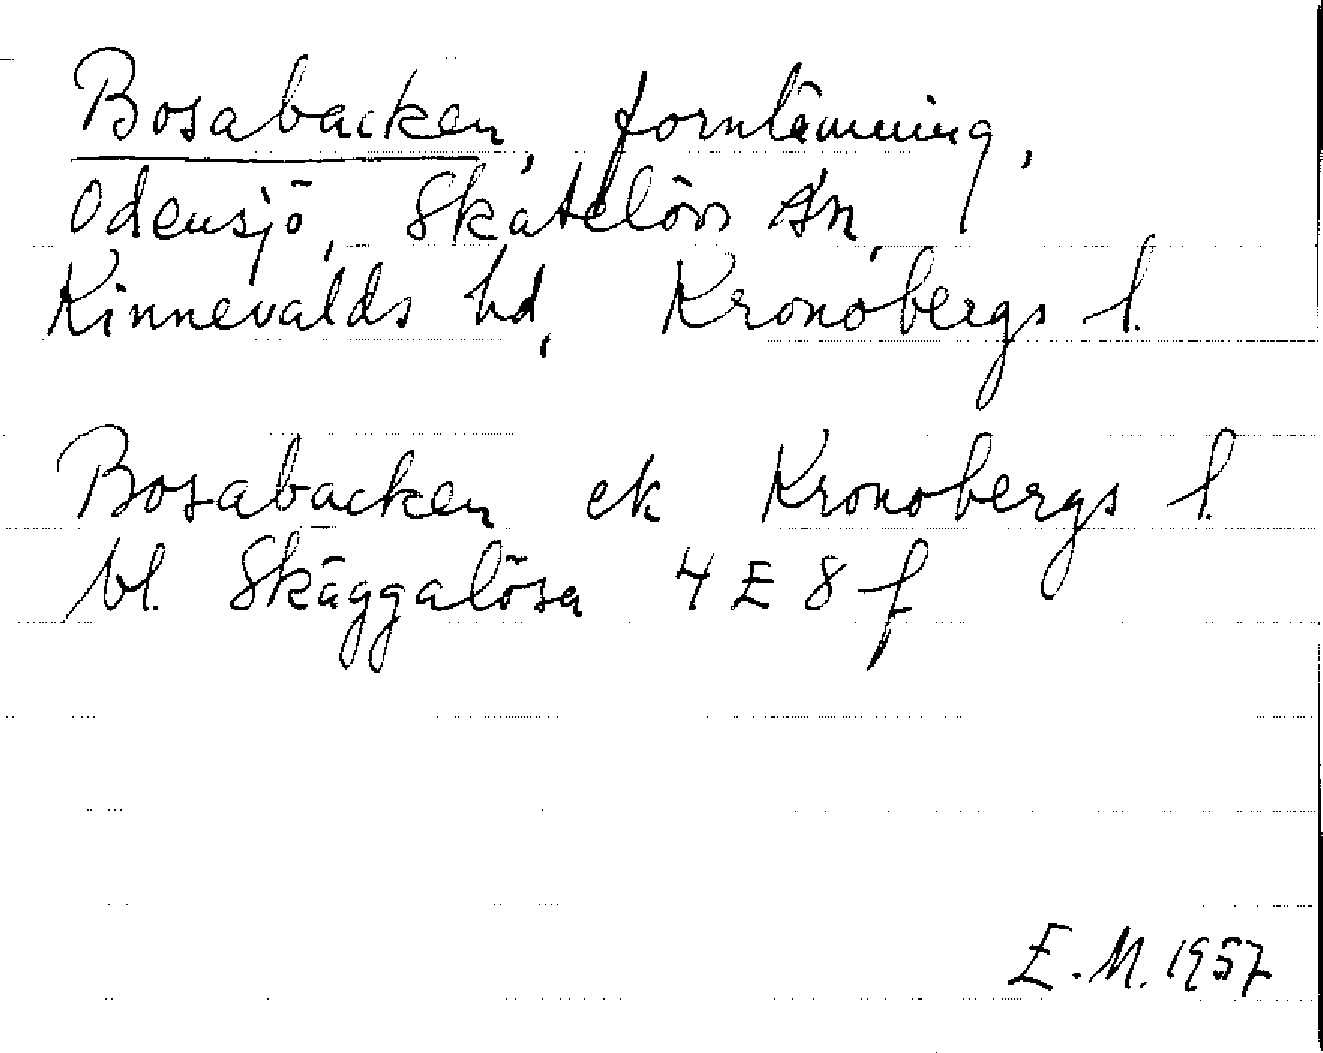 Bosabacken, fornlämning,
Odensjö, Skatelövs sn,
Kinnevalds hd, Kronobergs l.
Bosabacken ek Kronobergs l.
bl. Skäggalösa 4 E 8 f
E. M. 1957